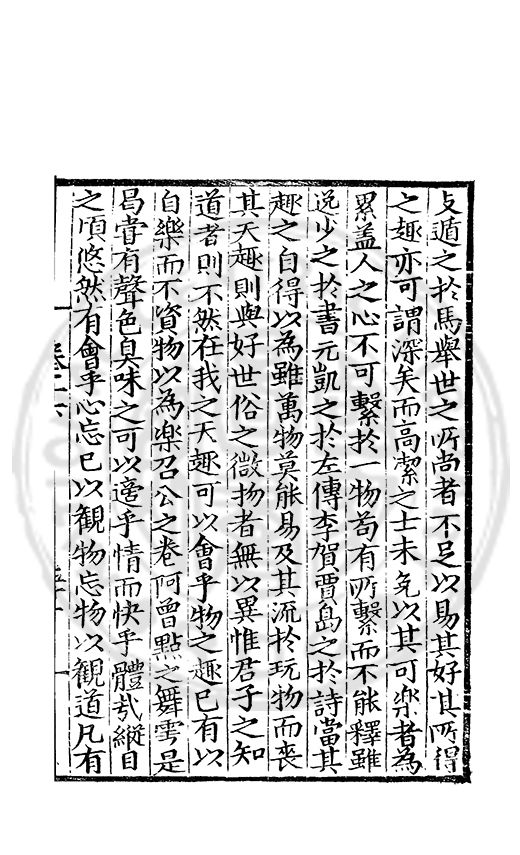 攴遁之扵馬舉世之所尚者不足以易其好其所得
之趣亦可謂深矣而高潔之士未免以其可樂者為
累盖人之心不可繫扵一物苟有所繫而不能釋雖
逸少之扵書元凱之扵左傳李賀賈島之扵詩當其
趣之自得以為雖萬物莫能易及其流扵玩物而喪
其天趣則與好世俗之微物者無以異惟君子之知
道者則不然在我之天趣可以會乎物之趣已有以
自樂而不資物以為樂召公之卷阿曾點之舞雩是
曷嘗有聲色臭味之可以適乎情而快乎體哉縱目
之頃悠然有會乎心忘已以観物忘物以観道凡有
卷二六